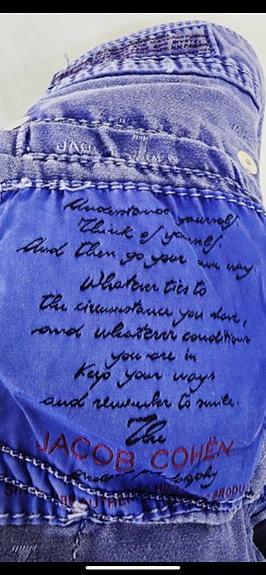 JACOB
Understand yourself.
Think of yourself.
And then go your own way.
Whatever ties to
the circumstance you have,
and whatever conditions
you are in
Keep your ways
and remember to smile.
The
JACOB COHËN
philosophy